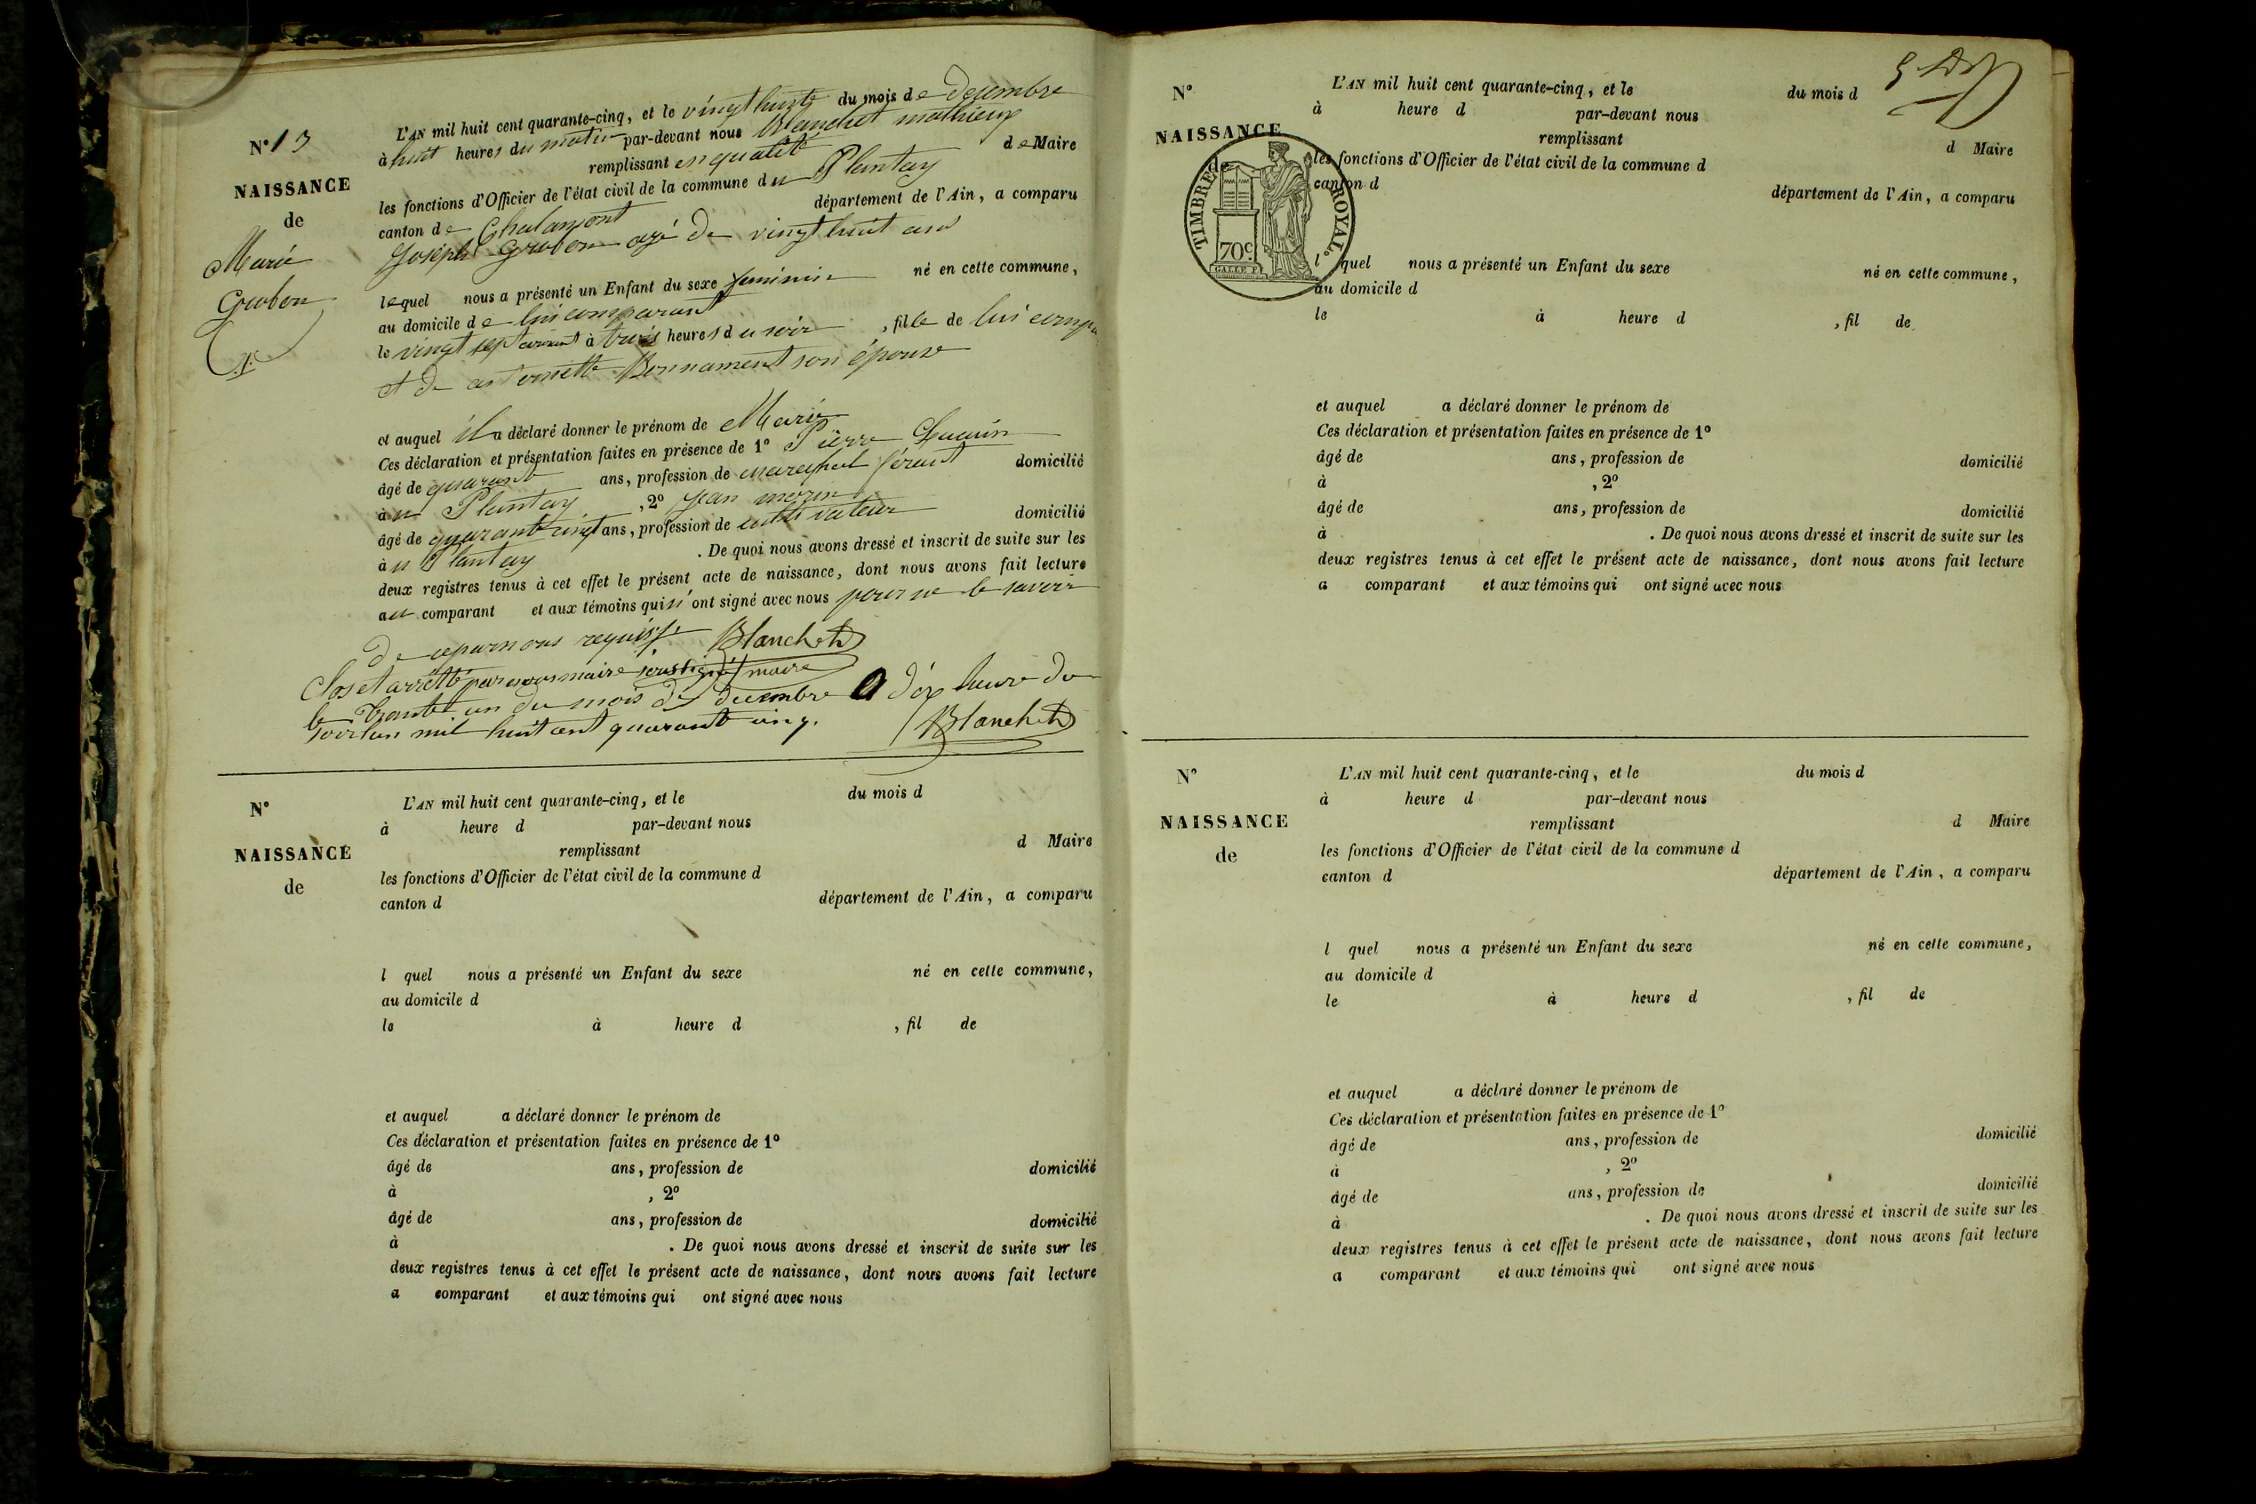 N° 13
NAISSANCE
de
Marie
Grobon
L'AN mil huit cent quarante-cinq, et le vingt huit du mois de decembre
à huit heures du matin par-devant nous Blanchet mathieu
remplissant en qualité de Maire
les fonctions d'Officier de l'état civil de la commune du Plantay
canton de Chalamont département de l'Ain, a comparu
Joseph Grobon agé de vingt huit ans
lequel nous a présenté un Enfant du sexe feminin né en cette commune,
au domicile de lui comparant
le vingt sept courant à trois heures du soir, fille de lui compa
et de antoinette Bonnament son épouse
et auquel il a déclaré donner le prénom de Marie
Ces déclaration et présentation faites en présence de 1° Pierre
âgé de quarante ans, profession de marechal férant domicilié
à u Plantay, 2° jean morin
âgé de quarante cinq ans, profession de cultivateur domicilié
à u Plantay. De quoi nous avons dressé et inscrit de suite sur les
deux registres tenus à cet effet le présent acte de naissance, dont nous avons fait lecture
au comparant et aux témoins qui n'ont signé avec nous pour ne le savoir
de ce par nous requis Blanchet
Clos et arretté par nous maire soussigné maire
le trente un du mois de decembre a dix heure du
soir lan mil huit cent quarante cinq. Blanchet
N°
NAISSANCE
de
L'AN mil huit cent quarante-cinq, et le du mois d
à heure d par-devant nous
remplissant d Maire
les fonctions d'Officier de l'état civil de la commune d
canton d département de l'Ain, a comparu
l quel nous a présenté un Enfant du sexe né en cette commune,
au domicile d
le à heure d, fil de
et auquel a déclaré donner le prénom de
Ces déclaration et présentation faites en présence de 1°
âgé de ans, profession de domicilié
à, 2°
âgé de ans, profession de domicilié
à. De quoi nous avons dressé et inscrit de suite sur les
deux registres tenus à cet effet le présent acte de naissance, dont nous avons fait lecture
a comparant et aux témoins qui ont signé avec nous
N°
NAISSANCE
de
TIMBRE ROYAL
70c
L'AN mil huit cent quarante-cinq, et le du mois d
à heure d par-devant nous
remplissant d Maire
les fonctions d'Officier de l'état civil de la commune d
canton d département de l'Ain, a comparu
l quel nous a présenté un Enfant du sexe né en cette commune,
au domicile d
le à heure d, fil de
et auquel a déclaré donner le prénom de
Ces déclaration et présentation faites en présence de 1°
âgé de ans, profession de domicilié
à, 2°
âgé de ans, profession de domicilié
à. De quoi nous avons dressé et inscrit de suite sur les
deux registres tenus à cet effet le présent acte de naissance, dont nous avons fait lecture
a comparant et aux témoins qui ont signé avec nous
N°
NAISSANCE
de
L'AN mil huit cent quarante-cinq, et le du mois d
à heure d par-devant nous
remplissant d Maire
les fonctions d'Officier de l'état civil de la commune d
canton d département de l'Ain, a comparu
l quel nous a présenté un Enfant du sexe né en cette commune,
au domicile d
le à heure d, fil de
et auquel a déclaré donner le prénom de
Ces déclaration et présentation faites en présence de 1°
âgé de ans, profession de domicilié
à, 2°
âgé de ans, profession de domicilié
à. De quoi nous avons dressé et inscrit de suite sur les
deux registres tenus à cet effet le présent acte de naissance, dont nous avons fait lecture
a comparant et aux témoins qui ont signé avec nous